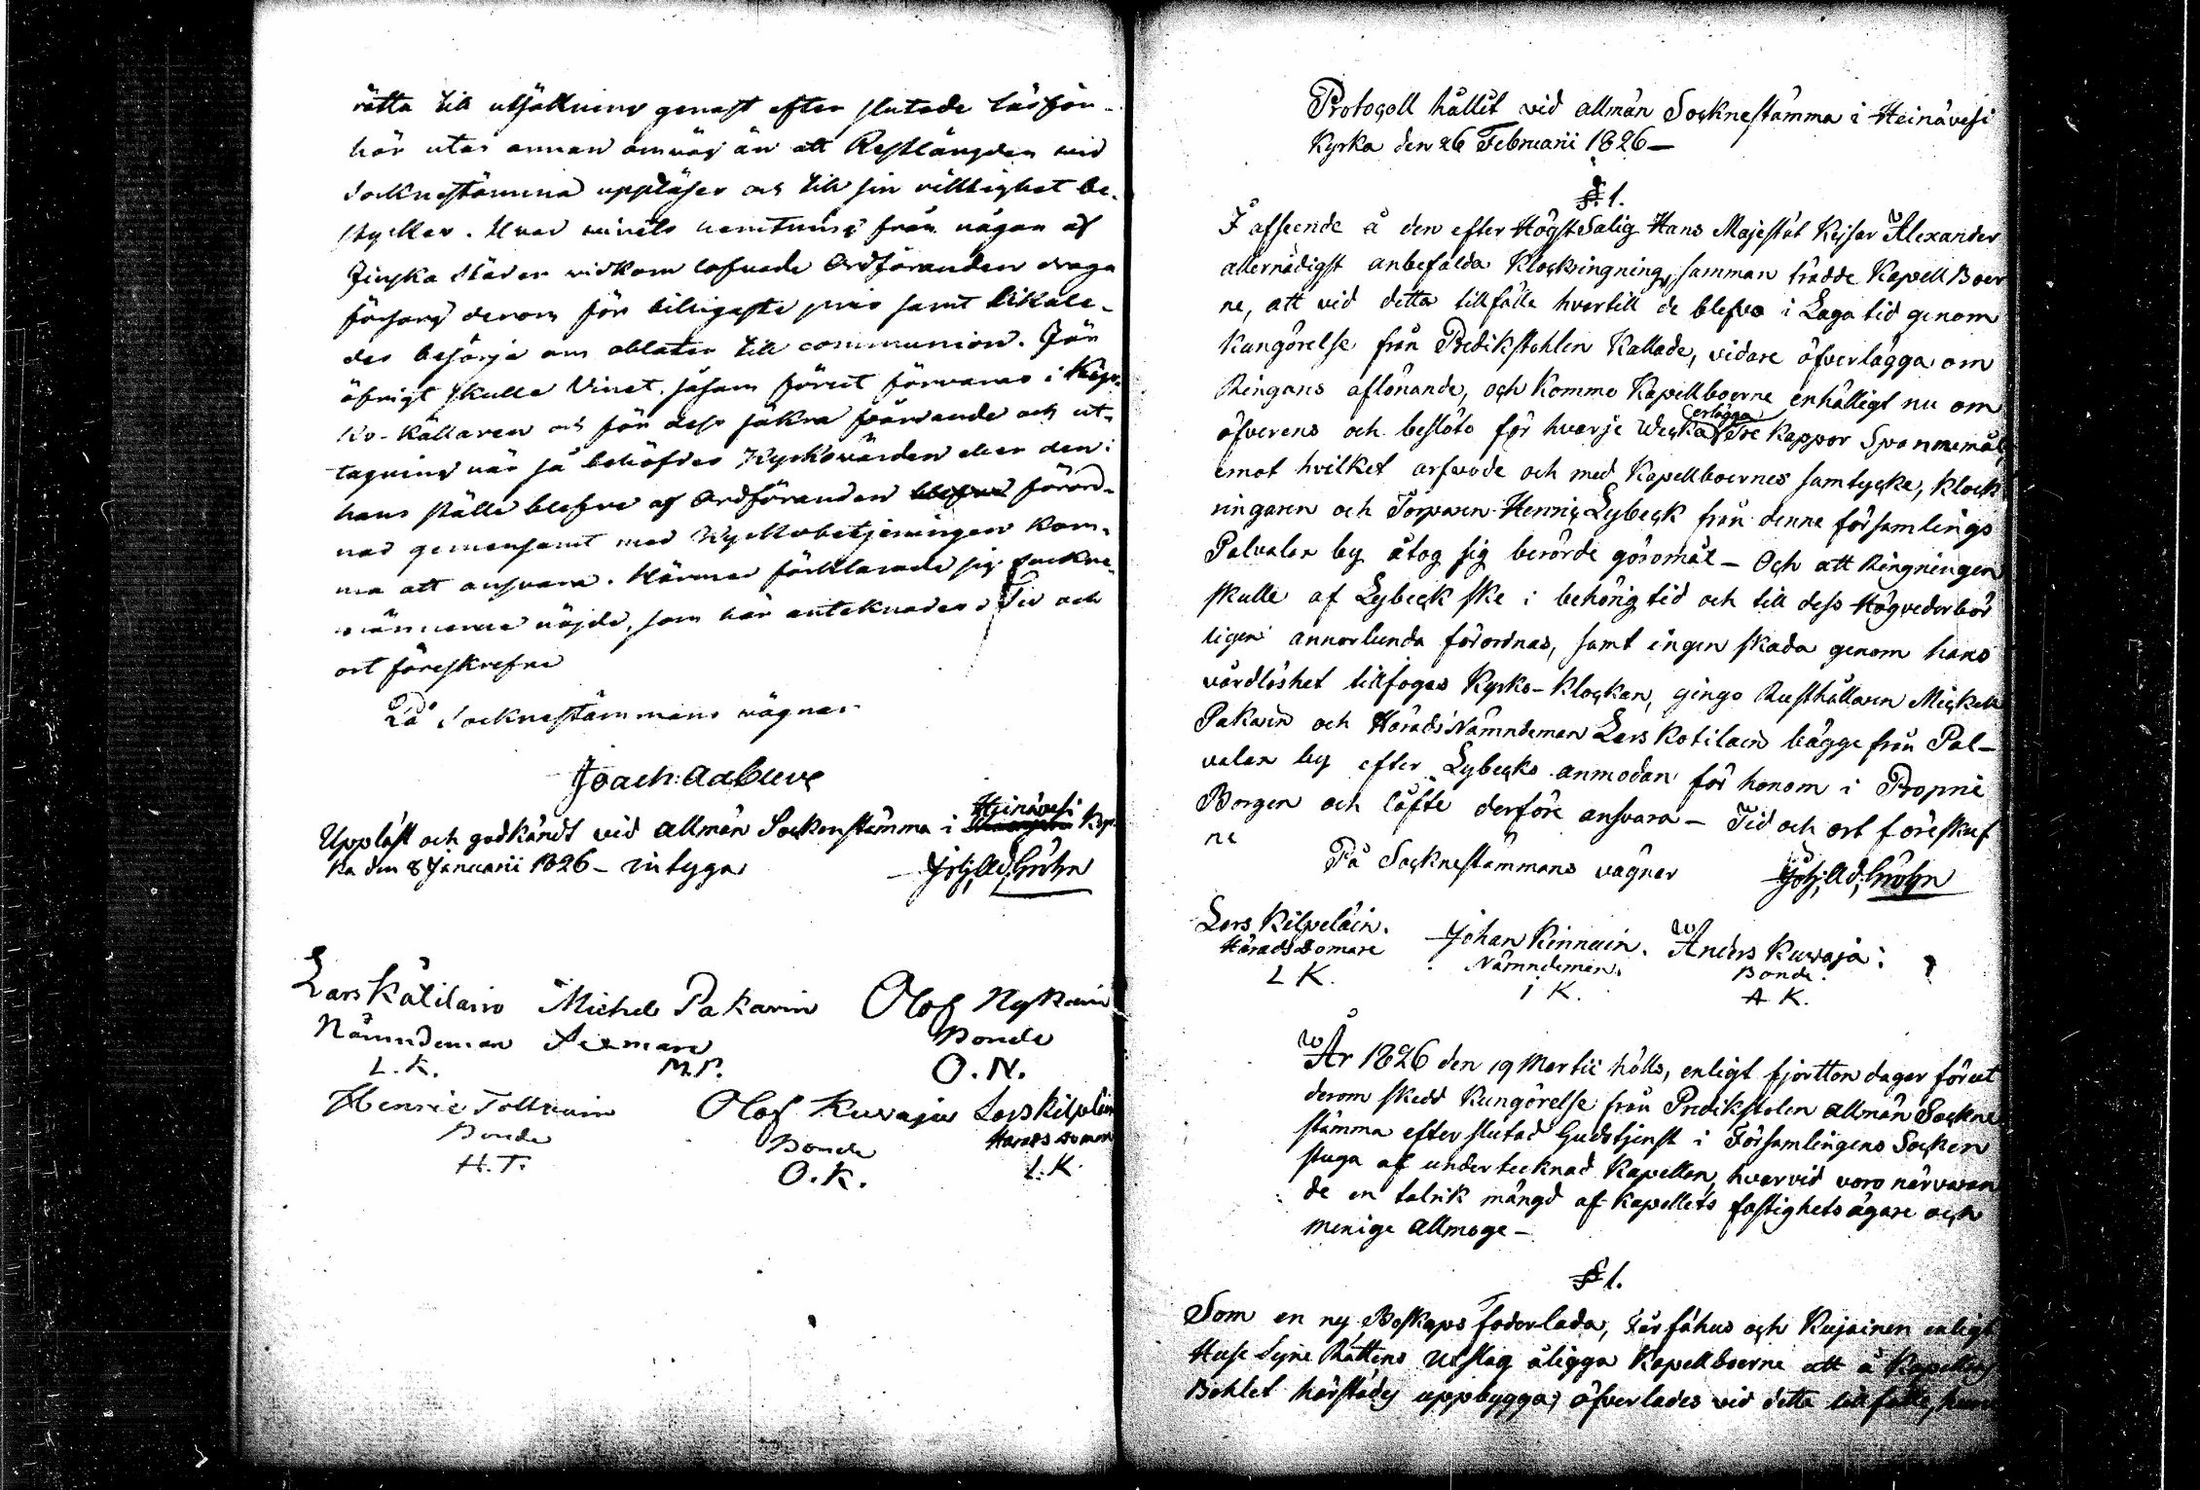 rätta till utsökning genast efter slutade Läsför-
hör utan annan omväg än att Restlängden vid
Socknestämma uppläses och till sin riktighet be-
styrkes. Hvad vinets hemtning från någon af
Finska städer vidkom lofvade Ordföranden draga
försorg derom för billigaste pris samt likale-
des besörja om oblater till communion. För
öfrigt skulle Vinet såsom förut förvaras i Kyr-
ko-källaren och för dess säkra förvarande och ut-
tagning när så behöfdes Kyrkovärden eller den i
hans ställe blefve af Ordföranden förord-
nad gemensamt med Kyrkobetjeningen kom-
ma att ansvara. Härmed förklarade sig Sockne-
männerne nöjde, som här antecknades. Tid och
ort föreskrefne
På Socknestämmans vägnar
Joach: Adleve
Heinävesi
Uppläst och godkändt vid allmän Sockenstämma i Kyr-
ka den 8 Januarii 1826 – intyga
Joh. Ad. Gröhn
Lars Kåtilain Michel Pakarin Olof Nykain
Nämndeman Sexman Bonde
L. K. M. P. O. N.
Henric Tolvain Olof Kuvaja Lars Kilpelain
Bonde Bonde Härads domare
H. T. O. K. L. K.
Protocoll hållet vid allmän Socknestämma i Heinävesi
Kyrka den 26 Februarii 1826 –
§ 1.
I afseende å den efter Högst Salig Hans Majestät Kejsar Alexander
allernådigst anbefalda Klockringning, samman trädde Kapell Boer
ne, att vid detta tillfälle hvertill de blefvo i Laga tid genom
Kungörelse från Predikstohlen Kallade, vidare öfverlägga om
Ringans aflönande, och Kommo Kapellboerne enhälligt nu om
erlägga
öfverens och beslöto för hvarje Wecka Tre Kappor Spannemål
emot hvilket arfvode och med Kapellboernes samtycke, Klock
ringaren och Torparen Henric Lybeck från denne församlings
Palvalax by åtog sig berörde göromål – Och att Ringningen
skulle af Lybeck ske i behörig tid och till dess Högvederbör
ligen annorlunda förordnas, samt ingen skada genom hans
vårdlöshet tillfogas Kyrko-Klockan, gingo Rusthållaren Mickel
Pakain och Härads Nämndeman Lars Kotilain bägge från Pal-
valax by efter Lybecks anmodan för honom i Proprie
Borgen och löfte derföre ansvara – Tid och ort föreskref
ne
På Socknestämmans vägnar Joh. Ad. Gröhn
Lars Kilpeläin. Johan Kinnuin. Anders Kuvaja:
Häradsdomare Nämndeman. Bonde.
L K. I K. A K.
År 1826 den 19 Martii hölls, enligt fjortton dagar förut
derom skedd Kungörelse från Predikstolen allmän Sockne
stämma efter slutad Gudstjenst i Församlingens Socken
stuga af undertecknad Kapellan, hvarvid voro närvaran
de en talrik mängd af Kapellets fastighetsägare och
menige allmoge –
§ 1.
Som en ny Boskaps foderlada, Fårfähus och Kujainen enligt
Huse Syne Rättens Utslag åligga Kapellboerne att å Kapellans
Bohlet härstädes uppbygga; öfverlades vid detta tillfälle, huru